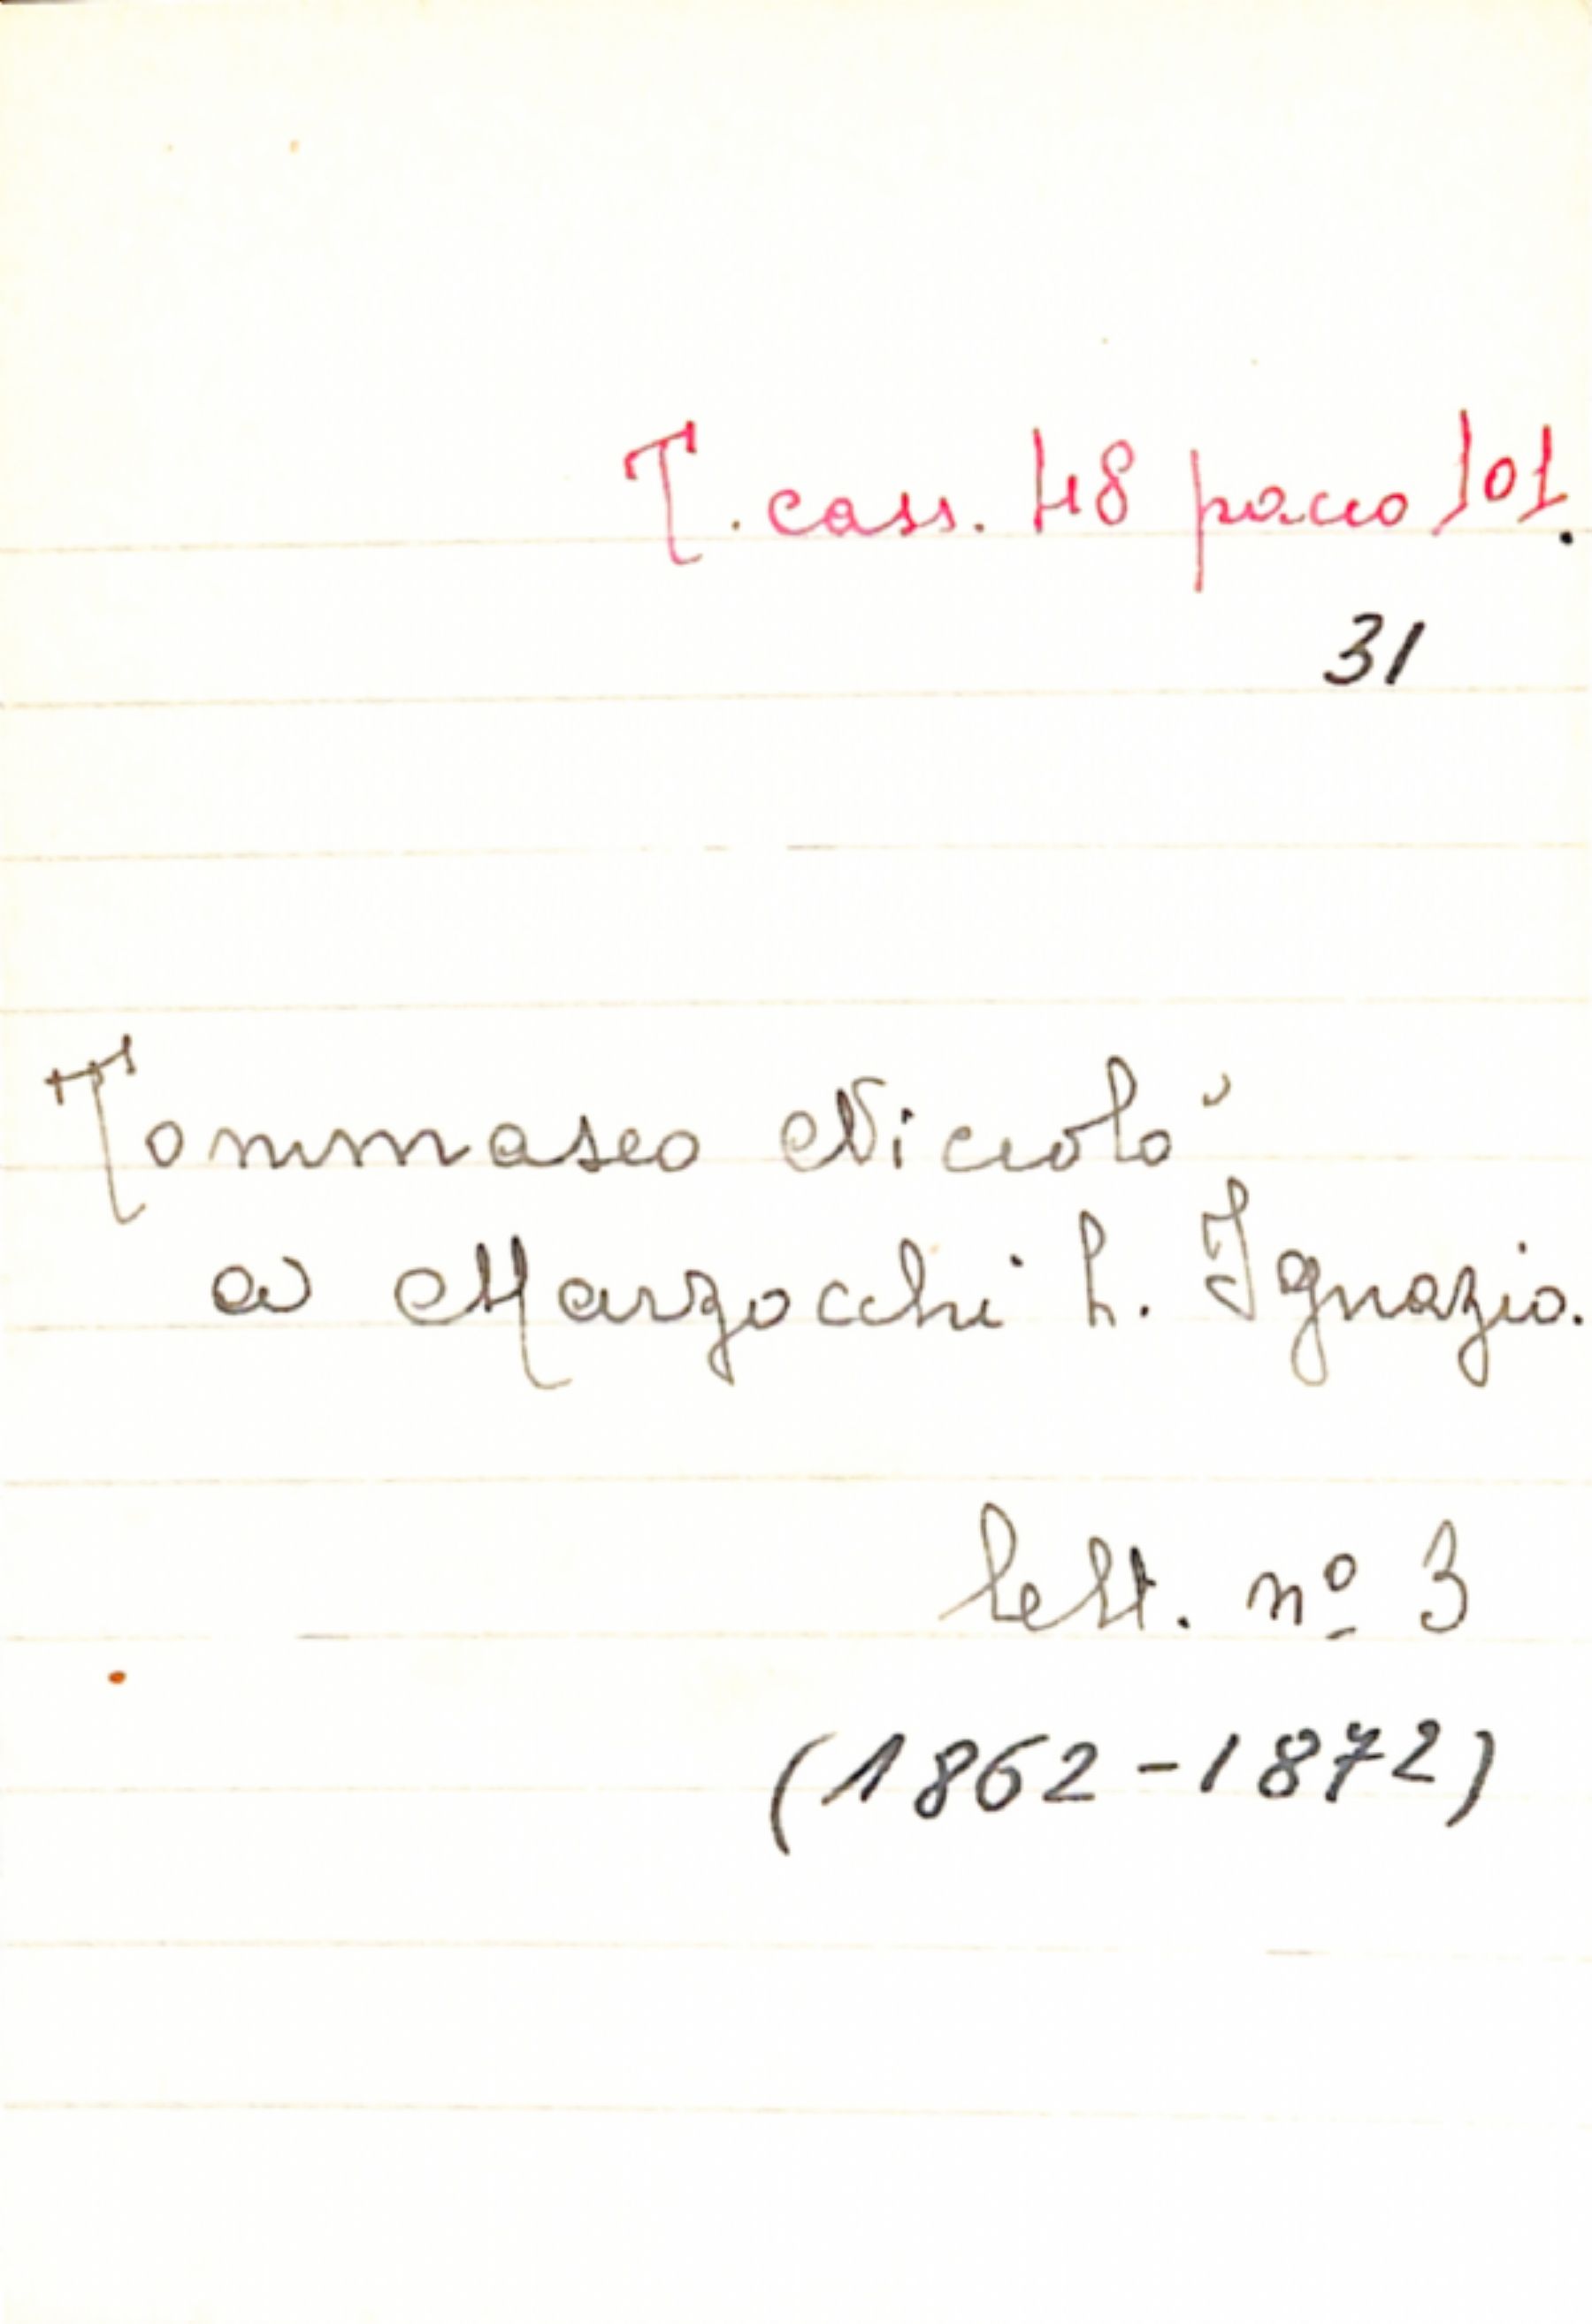 T. cass. 48 pacco 101.
31
Tommaseo Niccolò
a Marzocchi L. Ignazio.
Lett. nº 3
(1862-1872)